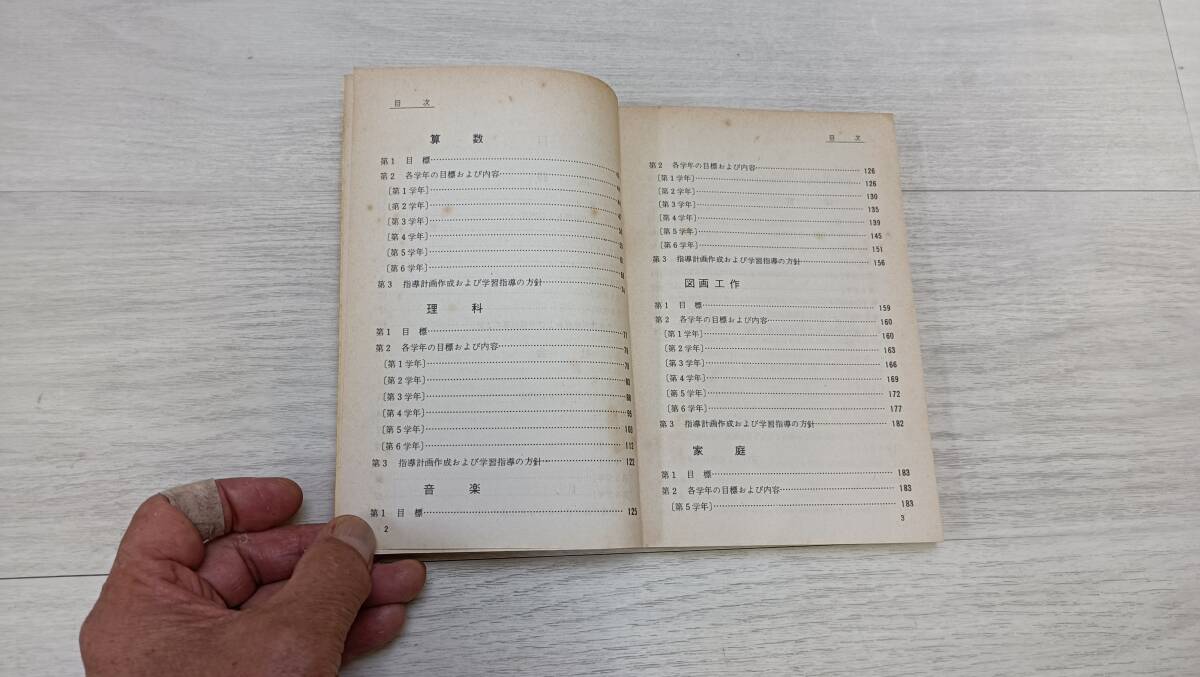 目 次
算 数
第1 目 標
第2 各学年の目標および内容
〔第1学年〕
〔第2学年〕
〔第3学年〕
〔第4学年〕
〔第5学年〕
〔第6学年〕
第3 指導計画作成および学習指導の方針
理 科
第1 目 標……77
第2 各学年の目標および内容……78
〔第1学年〕……78
〔第2学年〕……83
〔第3学年〕……88
〔第4学年〕……95
〔第5学年〕……103
〔第6学年〕……112
第3 指導計画作成および学習指導の方針……122
音 楽
第1 目 標……125
2
目 次
第2 各学年の目標および内容……126
〔第1学年〕……126
〔第2学年〕……130
〔第3学年〕……135
〔第4学年〕……139
〔第5学年〕……145
〔第6学年〕……151
第3 指導計画作成および学習指導の方針……156
図画工作
第1 目 標……159
第2 各学年の目標および内容……160
〔第1学年〕……160
〔第2学年〕……163
〔第3学年〕……166
〔第4学年〕……169
〔第5学年〕……172
〔第6学年〕……177
第3 指導計画作成および学習指導の方針……182
家 庭
第1 目 標……183
第2 各学年の目標および内容……183
〔第5学年〕……183
3